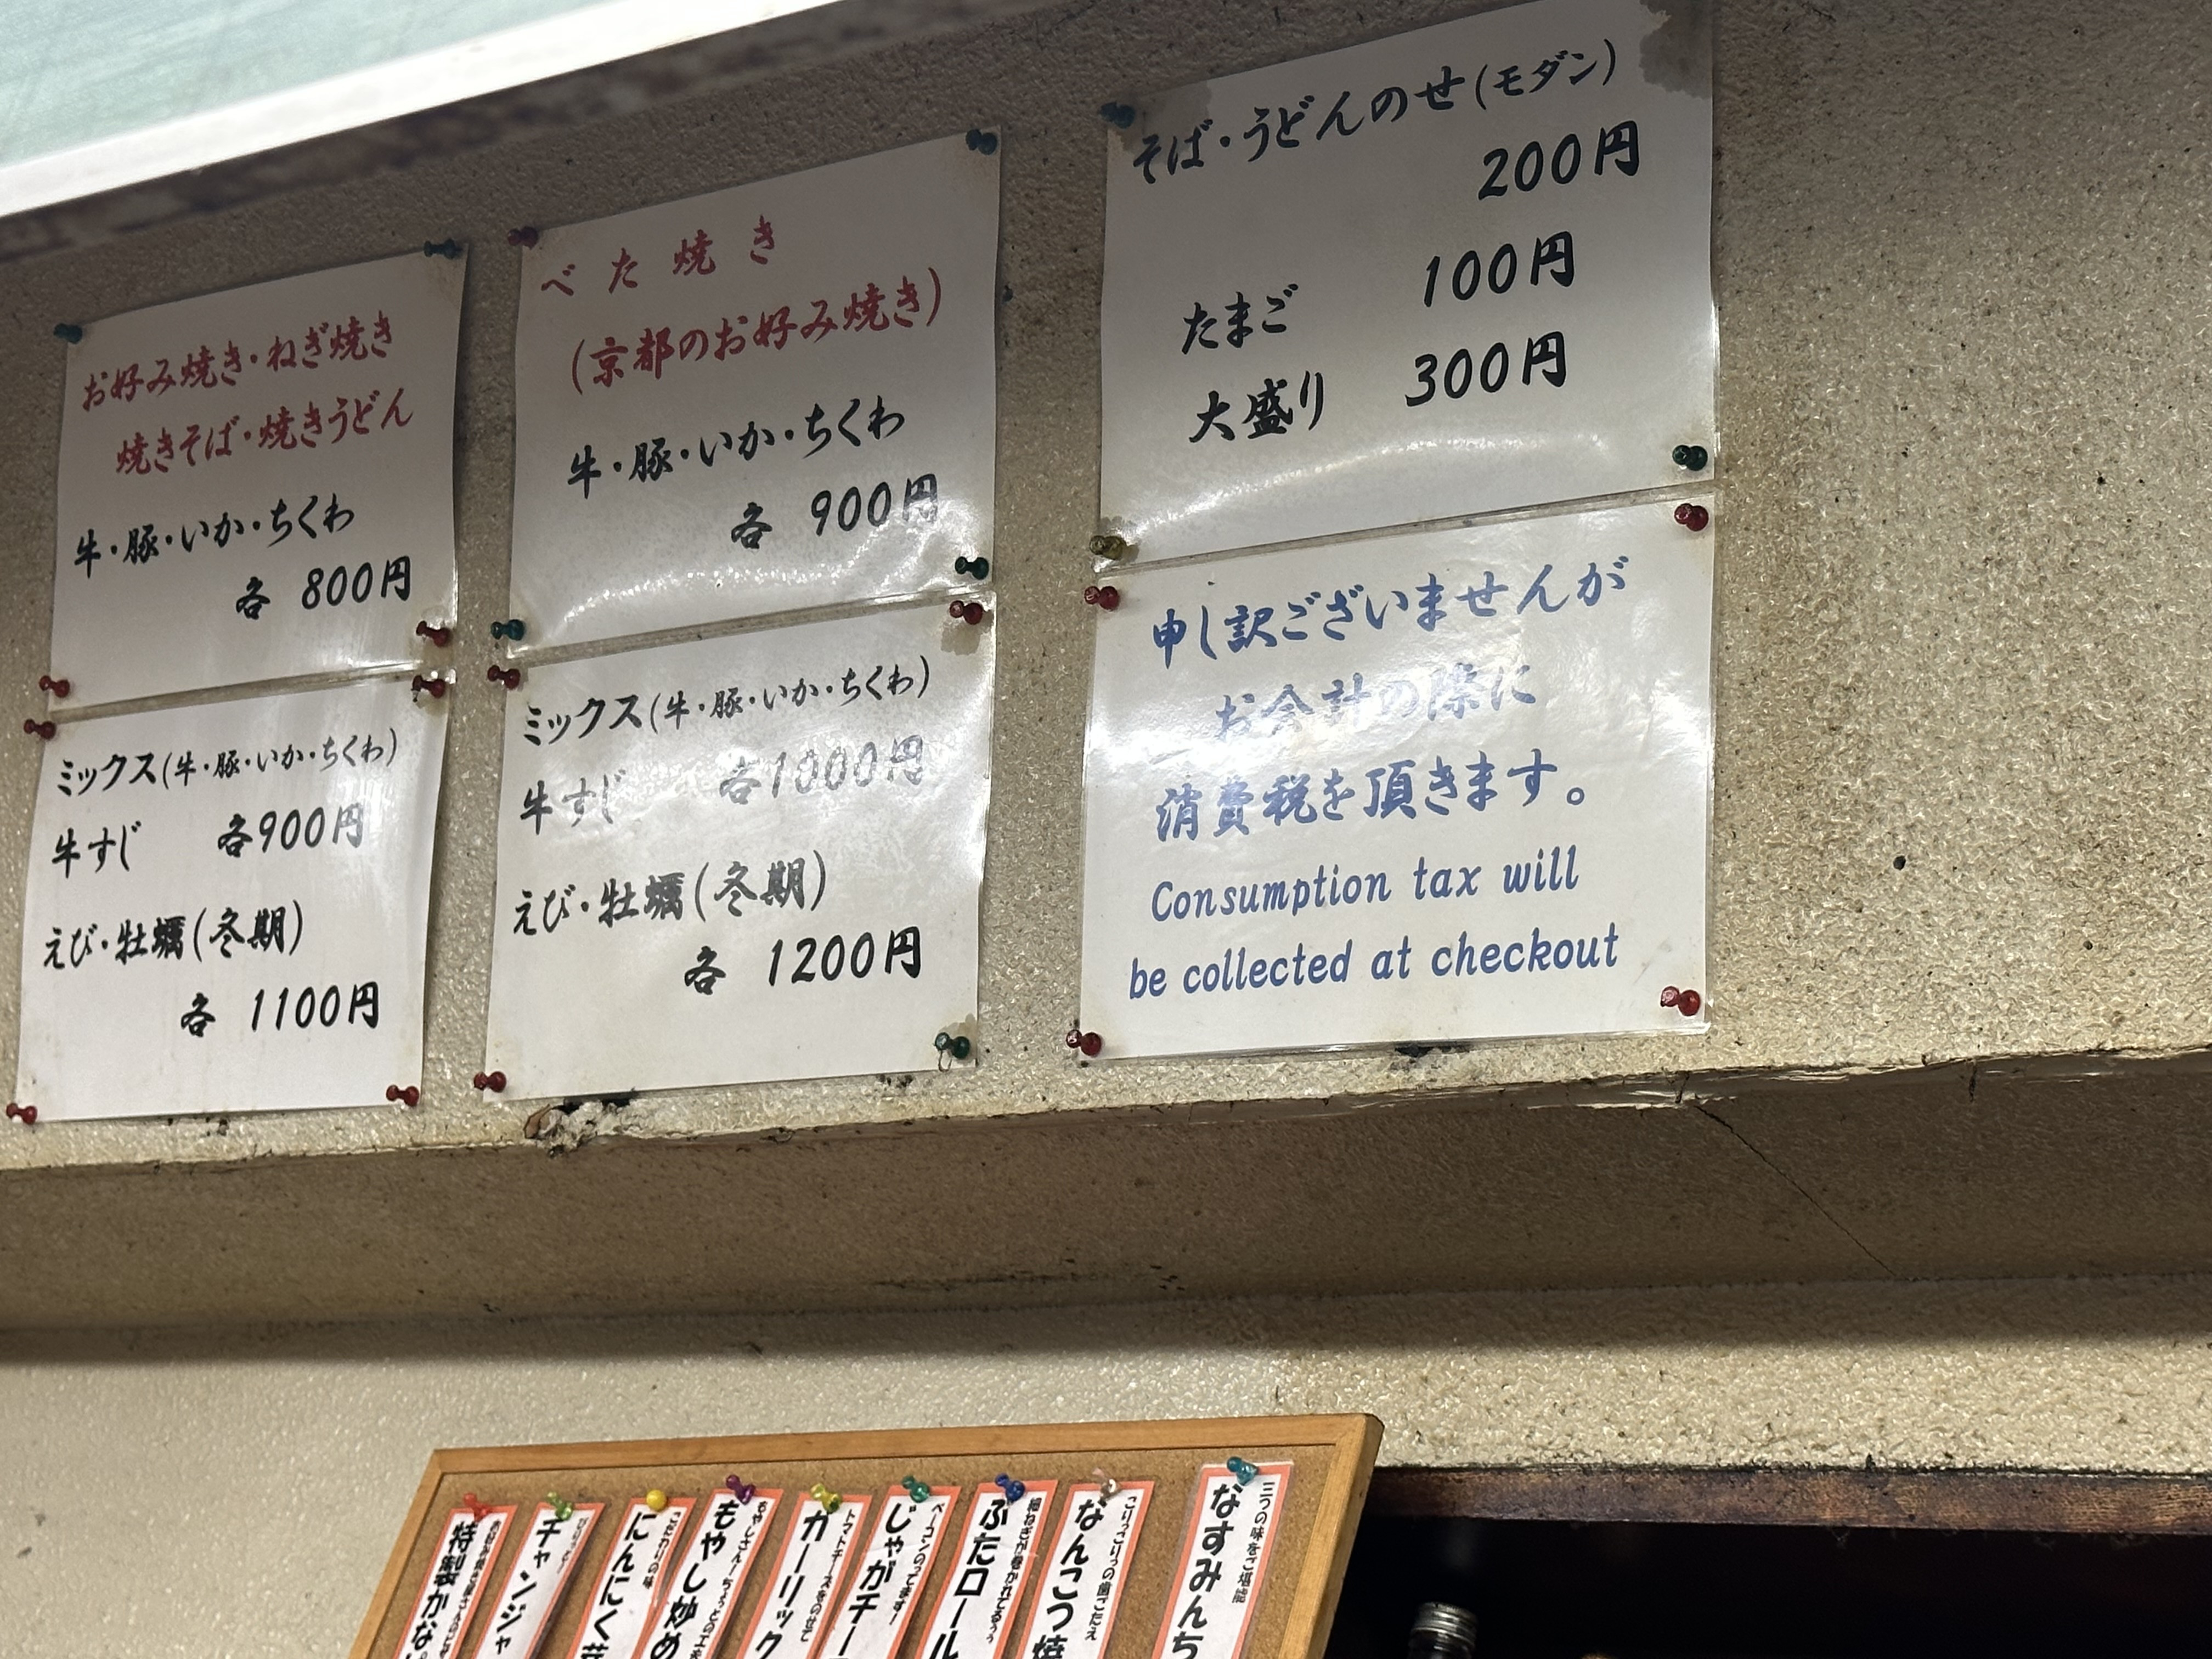 お好み焼き・ねぎ焼き
焼きそば・焼きうどん
牛・豚・いか・ちくわ
各 800円
ミックス(牛・豚・いか・ちくわ)
牛すじ 各900円
えび・牡蠣(冬期)
各 1100円
べた焼き
(京都のお好み焼き)
牛・豚・いか・ちくわ
各 900円
ミックス(牛・豚・いか・ちくわ)
牛すじ 各1000円
えび・牡蠣(冬期)
各 1200円
そば・うどんのせ(モダン)
200円
たまご 100円
大盛り 300円
申し訳ございませんが
お会計の際に
消費税を頂きます。
Consumption tax will
be collected at checkout
三つの味をご堪能
なすみんち
こりっこりっの歯ごたえ
なんこつ焼
ぶたロール
ベーコンのってます!
じゃがチー
トマトチーズをのせて
ガーリック
もやし炒め
こだわりの味
にんにく芽
チャンジャ
特製かな